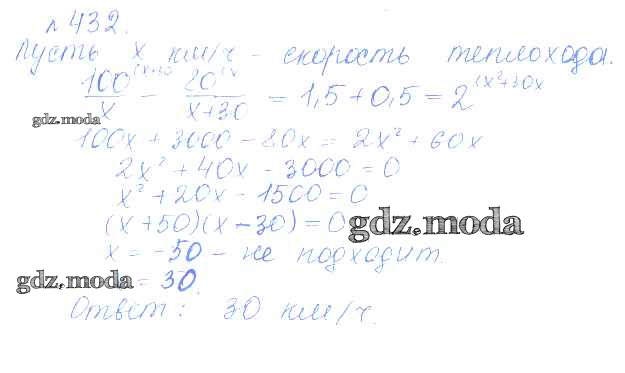 № 432.
Пусть x км/ч - скорость теплохода.
100^(x+30 / x - 80^(x / x+30 = 1,5 + 0,5 = 2^(x²+30x
gdz.moda
100x + 3000 - 80x = 2x² + 60x
2x² + 40x - 3000 = 0
x² + 20x - 1500 = 0
(x+50)(x-30) = 0
gdz.moda
x = -50 - не подходит.
gdz.moda = 30.
Ответ: 30 км/ч.